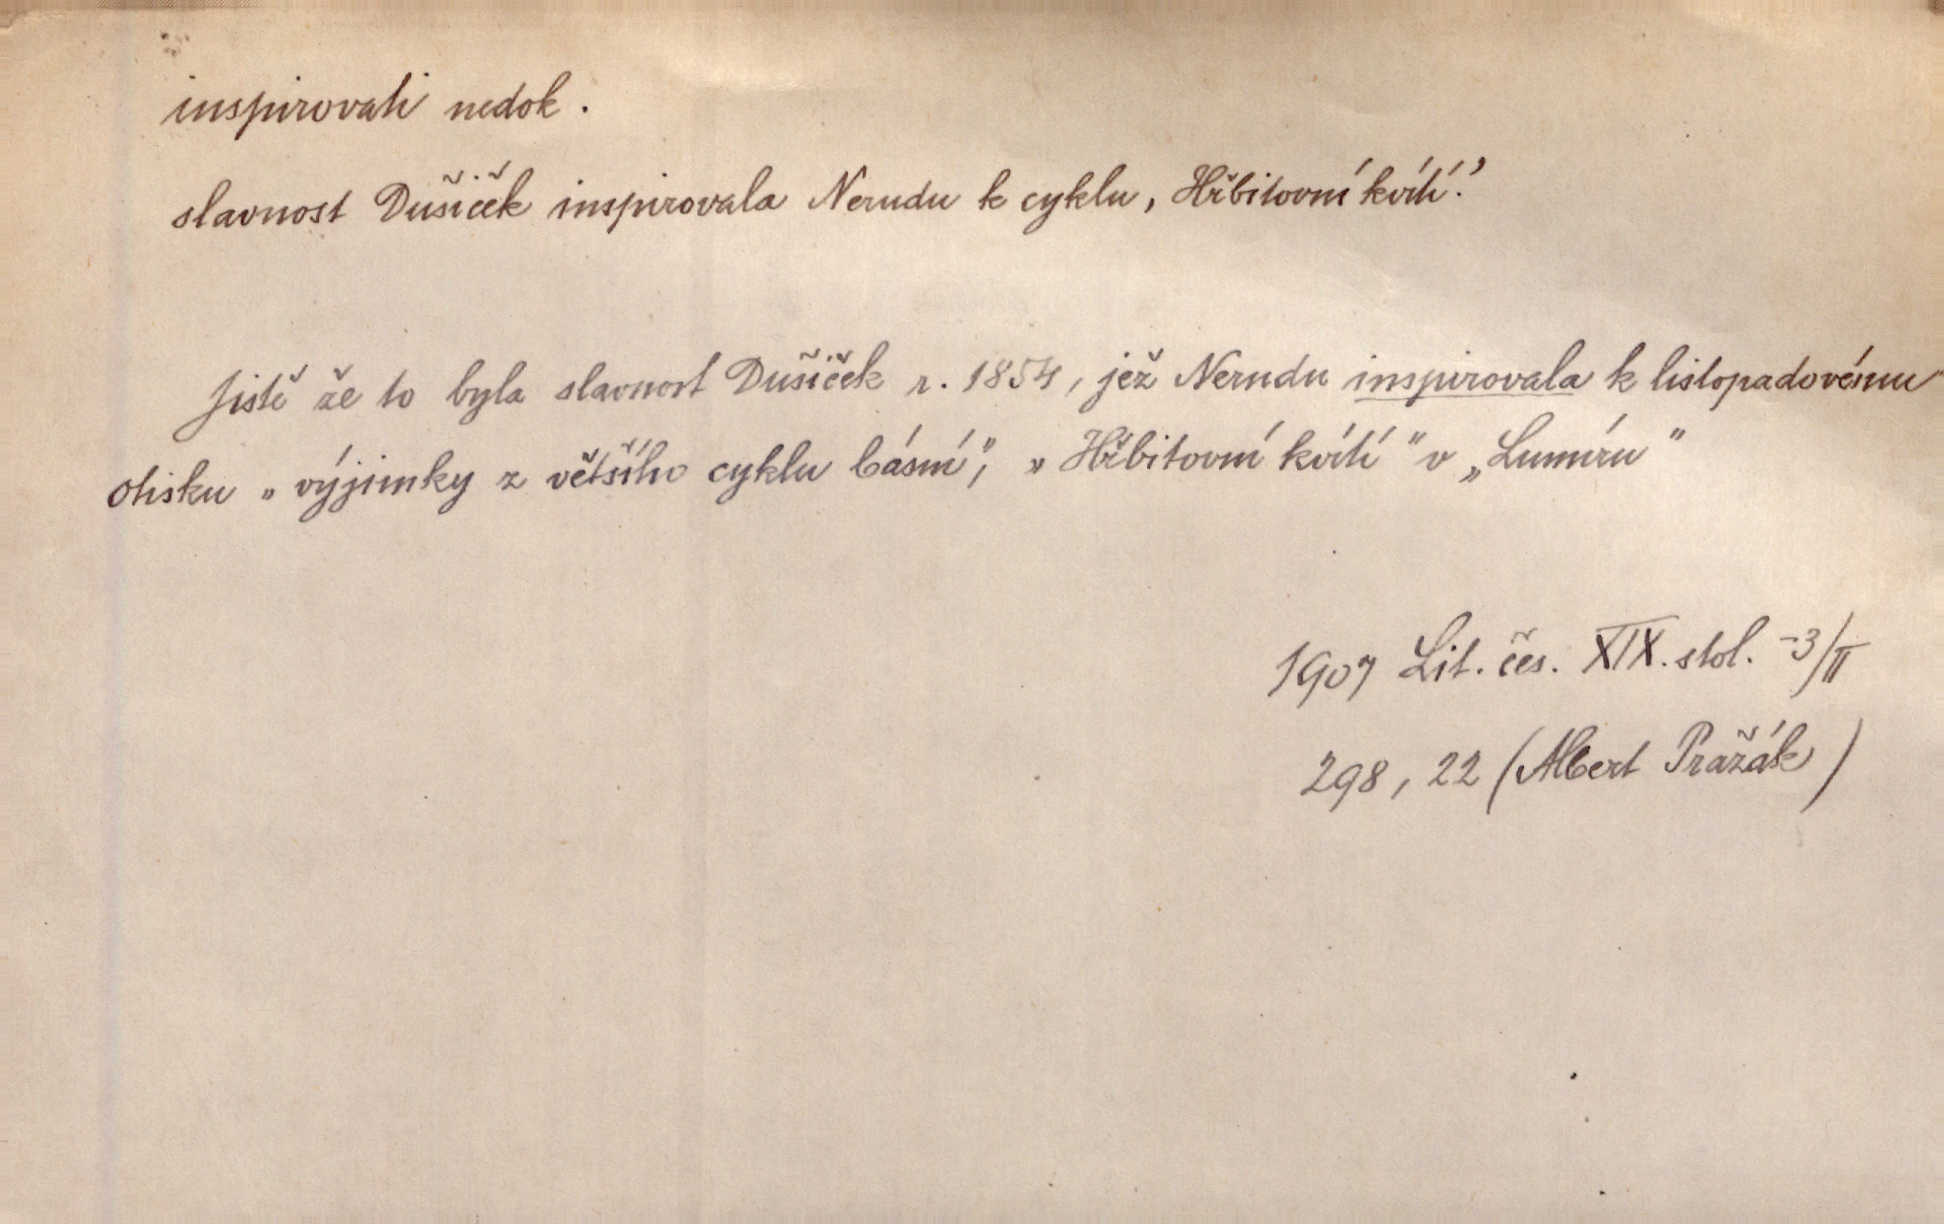 inspirovati nedok.
slavnost Dušiček inspirovala Nerudu k cyklu, Hřbitovní kvítí.'
Jistě že to byla slavnost Dušiček r. 1854, jež Nerudu inspirovala k listopadovému
otisku „výjimky z většího cyklu básní", „Hřbitovní kvítí" v „Lumíru"
1907 Lit. čes. XIX. stol. -3/II
298, 22 (Albert Pražák)